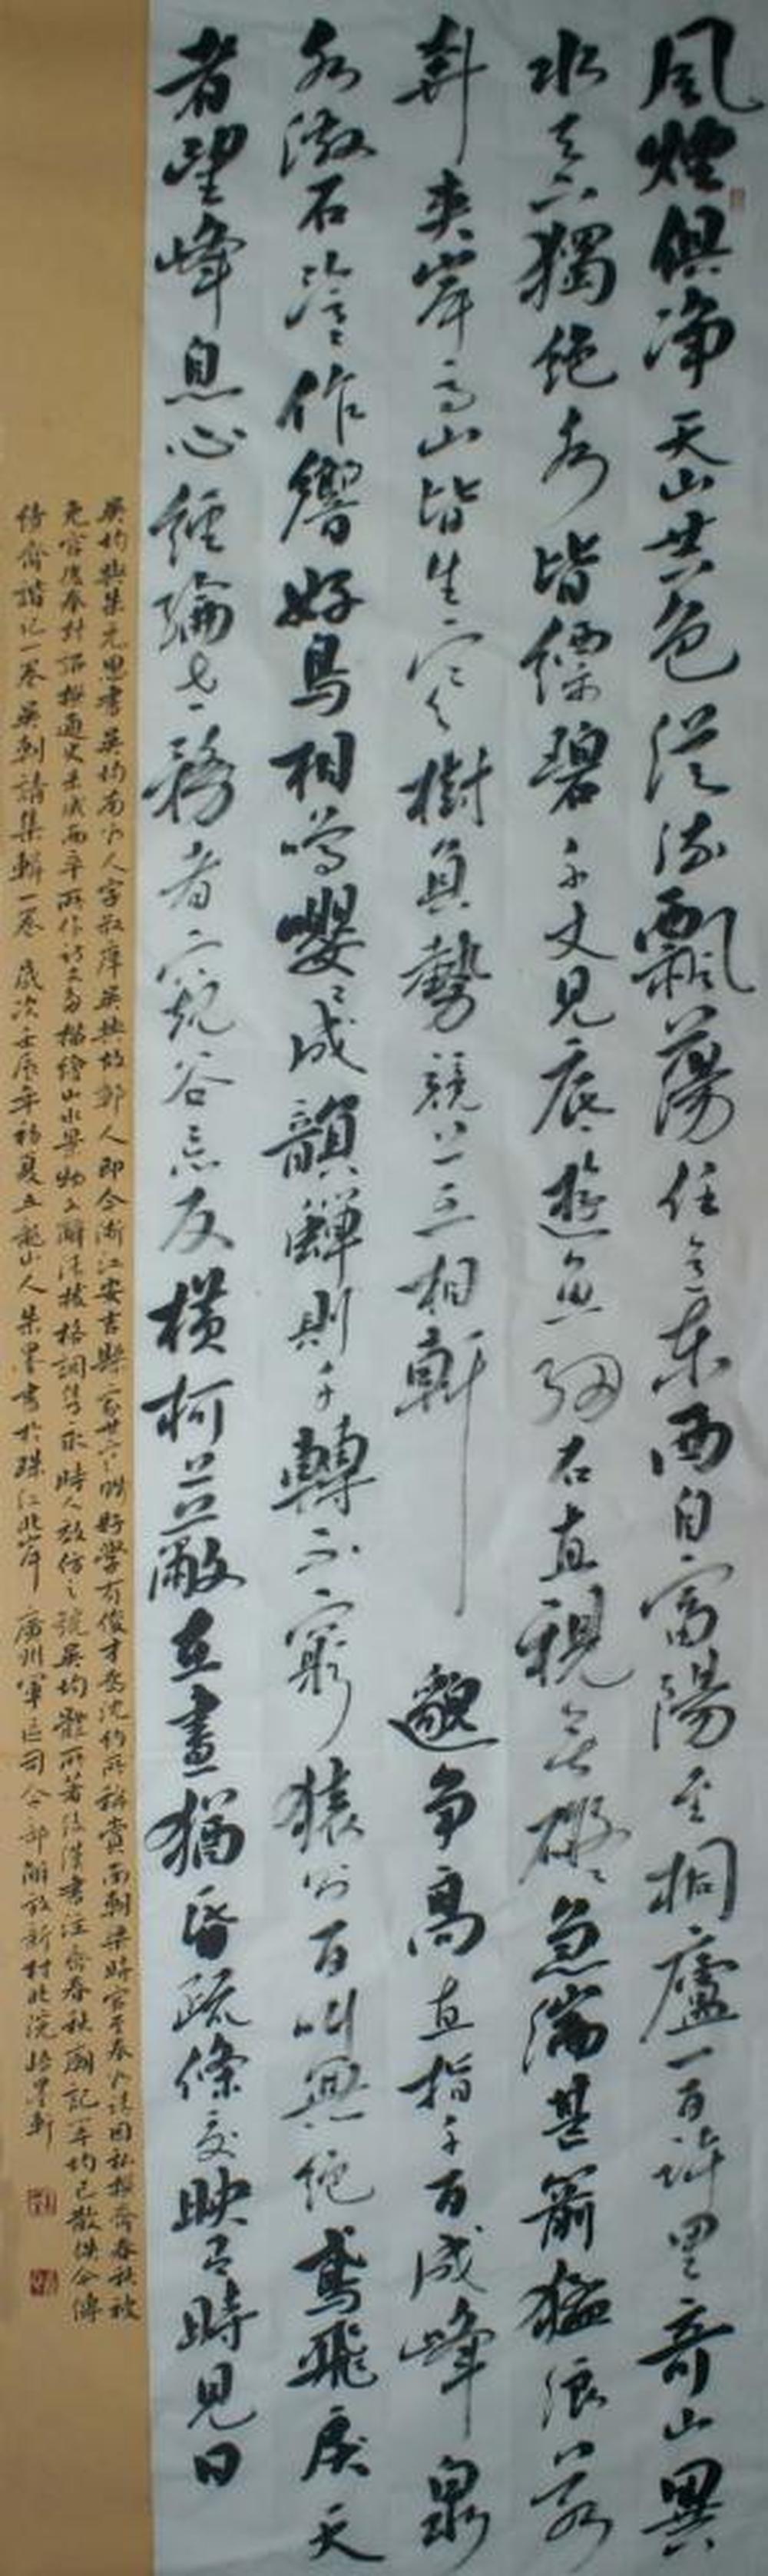 風煙俱淨天山共色從流飄蕩任意東西自富陽至桐廬一百許里奇山異
水天下獨絕水皆縹碧千丈見底遊魚細石直視無礙急湍甚箭猛浪若
奔夾岸高山皆生寒樹負勢競上互相軒邈爭高直指千百成峰泉
水激石泠泠作響好鳥相鳴嚶嚶成韻蟬則千轉不窮猿則百叫無絕鳶飛戾天
者望峰息心經綸世務者窺谷忘反橫柯上蔽在晝猶昏疏條交映有時見日
吳均與朱元思書吳均南北人字叔庠吳興故鄣人即今浙江安吉縣家世寒賤好學有俊才為沈約所稱賞南朝梁時官至奉朝請因私撰齊春秋被
免官後奉詔撰通史未成而卒所作詩文多描繪山水景物文辭清拔格調雋永時人效仿之號吳均體所著後漢書注齊春秋廟記等均已散佚今傳
續齊諧記一卷吳朝請集輯一卷歲次壬辰年初夏五龍山人朱墨書於珠江北岸廣州軍區司令部解放新村北院